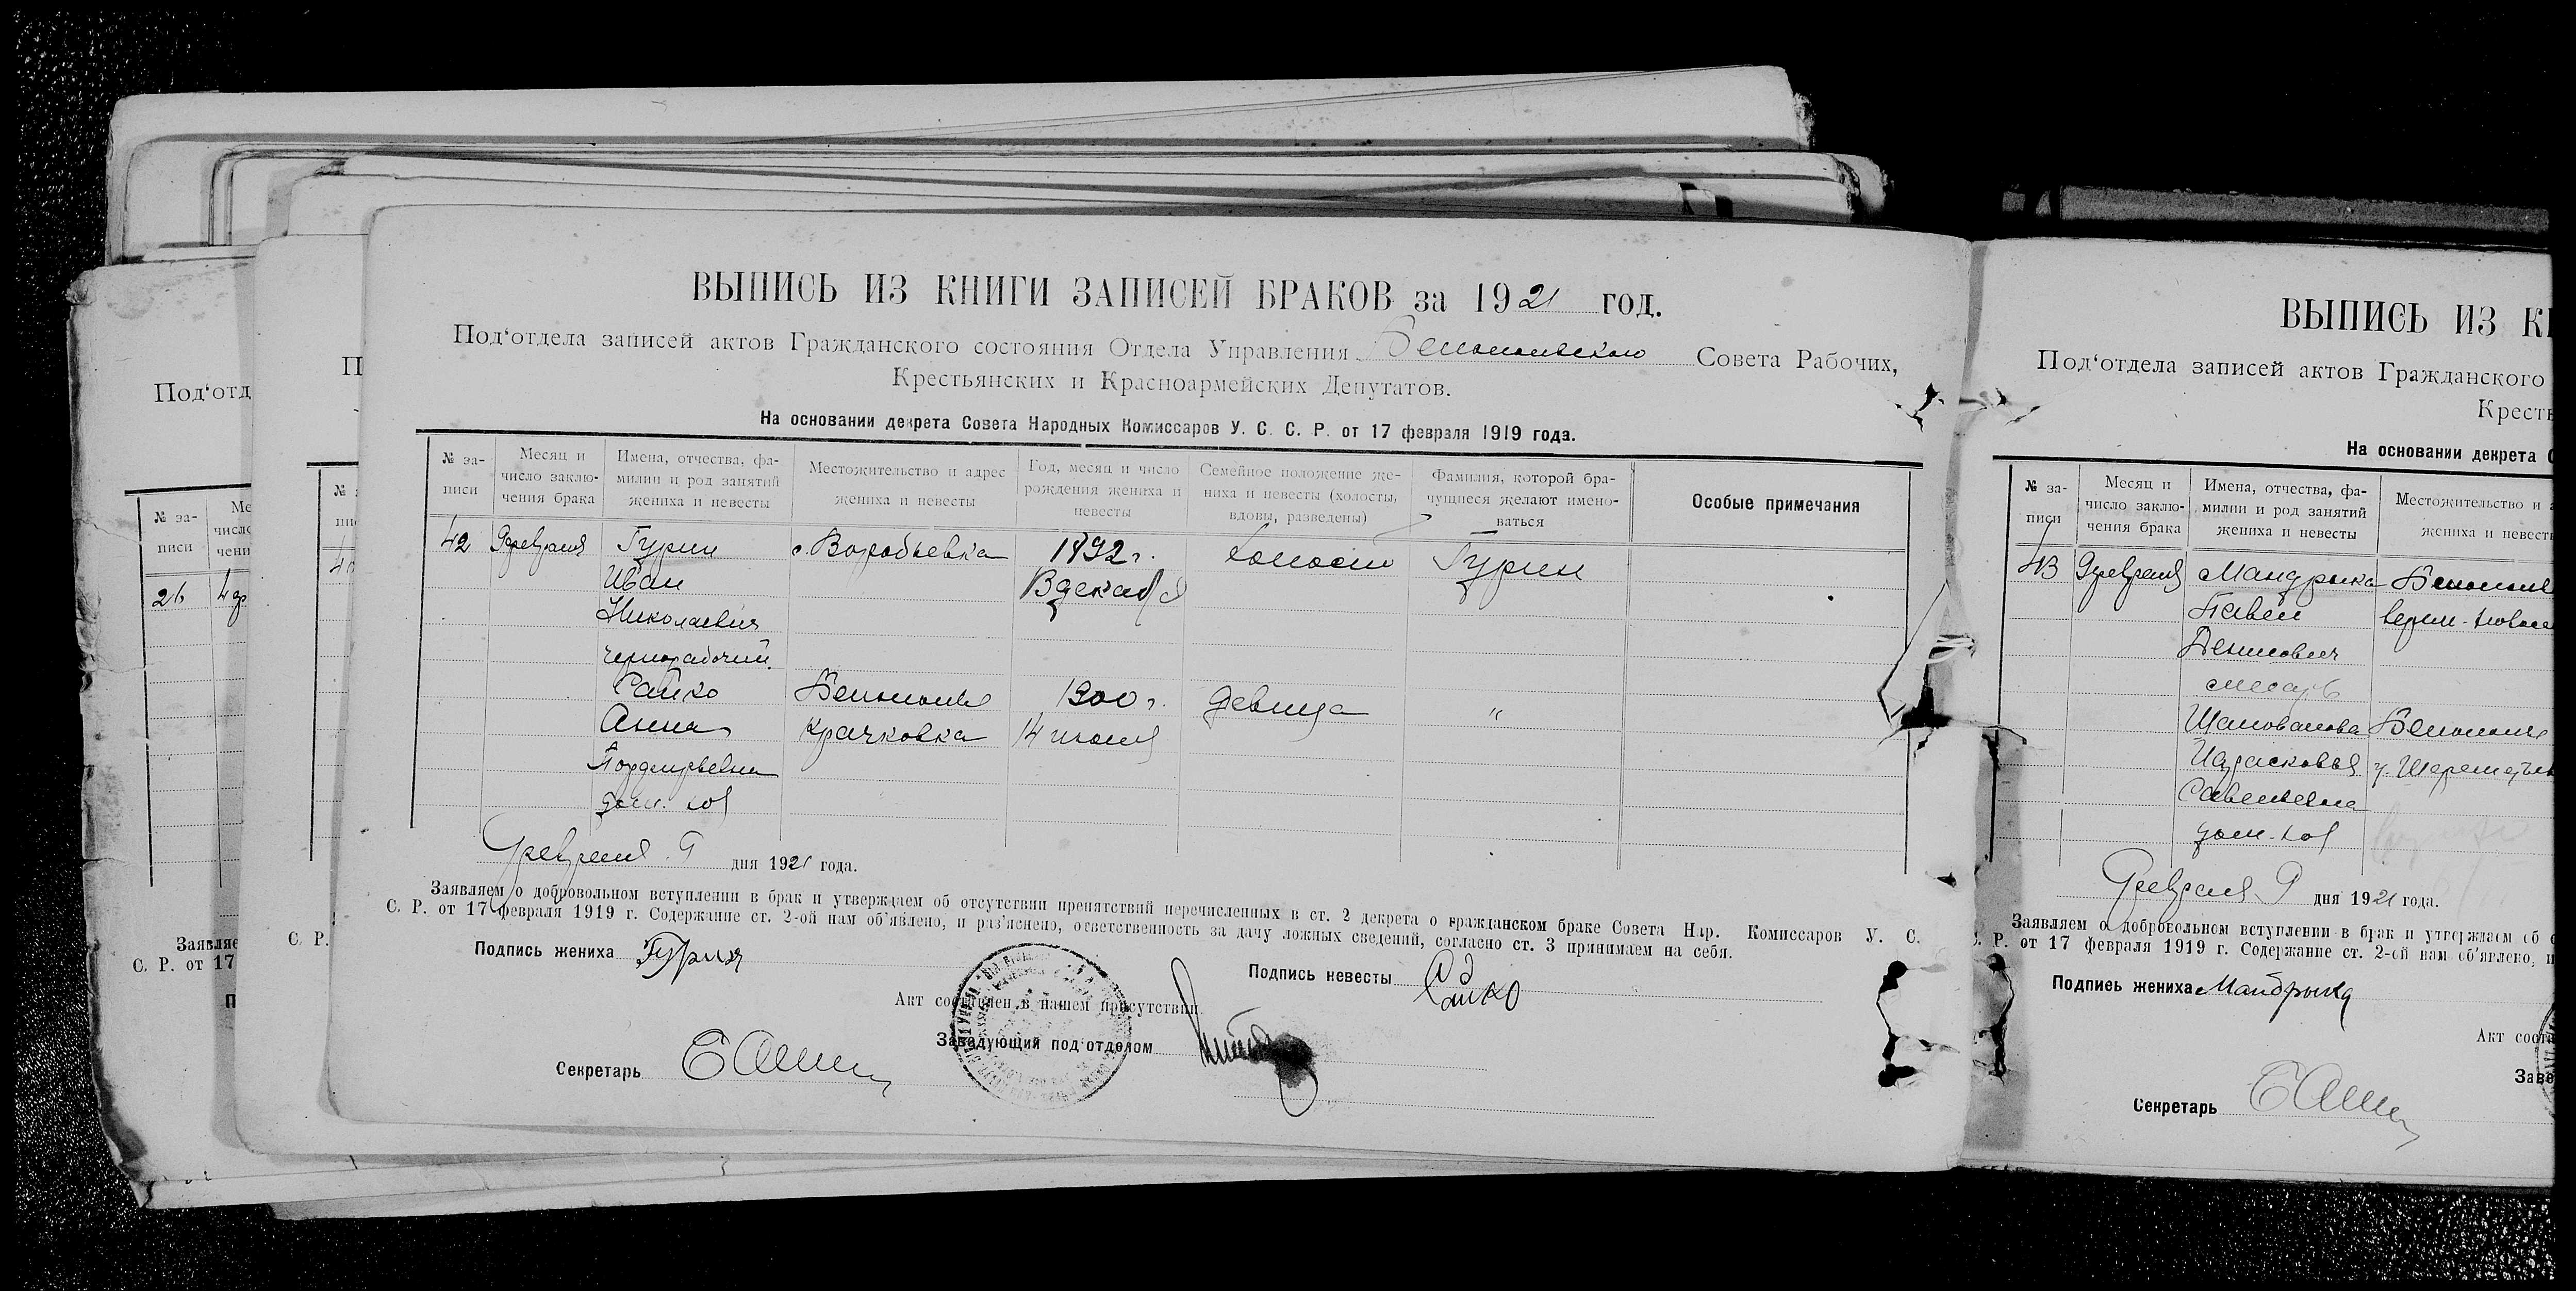 ВЫПИСЬ ИЗ КНИГИ ЗАПИСЕЙ БРАКОВ за 1921 год.
Под‘отдела записей актов Гражданского состояния Отдела Управления Белопольского Совета Рабочих,
Крестьянских и Красноармейских Депутатов.
На основании декрета Совета Народных Комиссаров У. С. С. Р. от 17 февраля 1919 года.
№ за-
писи
Месяц и
число заклю-
чения брака
Имена, отчества, фа-
милии и род занятий
жениха и невесты
Местожительство и адрес
жениха и невесты
Год, месяц и число
рождения жениха и
невесты
Семейное положение же-
ниха и невесты (холосты,
вдовы, разведены)
Фамилия, которой бра-
чущиеся желают имено-
ваться
Особые примечания
42 9 февраля Гурин с. Воробьевка 1892 г. холост Гурин
Иван декабря
Николаевич
чернорабочий
Сайко Белополье 1900 г. девица "
Анна Крачковка 14 июня
дом. хоз
Февраля 9 дня 1921 года.
Заявляем о добровольном вступлении в брак и утверждаем об отсутствии препятствий перечисленных в ст. 2 декрета о гражданском браке Совета Нар. Комиссаров У. С.
С. Р. от 17 февраля 1919 г. Содержание ст. 2-ой нам об‘явлено, и раз‘яснено, ответственность за дачу ложных сведений, согласно ст. 3 принимаем на себя.
Подпись жениха Гурин
Подпись невесты Сайко
Акт составлен в нашем присутствии
Заведующий под‘отделом
Секретарь
ВЫПИСЬ ИЗ К
Под‘отдела записей актов Гражданского
Кресть
На основании декрета С
№ за-
писи
Месяц и
число заклю-
чения брака
Имена, отчества, фа-
милии и род занятий
жениха и невесты
Местожительство и а
жениха и невест
43 9 февраля Мандрыка Белополь
Павел
Денисович
слесарь
Шаповалова Белополье
Парасковья
Савельевна
дом. хоз
Февраля 9 дня 1921 года.
Заявляем о добровольном вступлении в брак и утверждаем об о
С. Р. от 17 февраля 1919 г. Содержание ст. 2-ой нам об‘явлено, и
Подпись жениха Мандрыка
Акт соста
Заве
Секретарь
Под‘отд
№ за-
писи
Ме
число
чени
26
Заявляе
С. Р. от 17
П
П
С. Р.